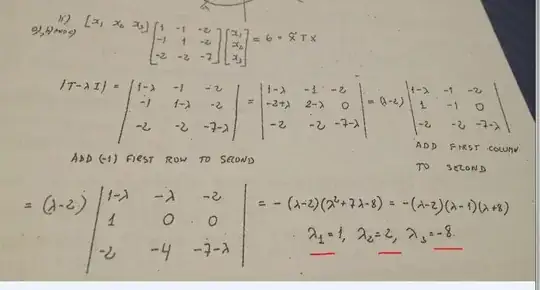 [x₁ x₂ x₃] [1 -1 -2; -1 1 -2; -2 -2 -7] [x₁; x₂; x₃] = 6 = x̄ T x
|T-λI| = |1-λ -1 -2; -1 1-λ -2; -2 -2 -7-λ| = |1-λ -1 -2; -2+λ 2-λ 0; -2 -2 -7-λ| = (λ-2) |1-λ -1 -2; 1 -1 0; -2 -2 -7-λ|
ADD (-1) FIRST ROW TO SECOND
ADD FIRST COLUMN
TO SECOND
= (λ-2) |1-λ -λ -2; 1 0 0; -2 -4 -7-λ| = -(λ-2)(λ²+7λ-8) = -(λ-2)(λ-1)(λ+8)
λ₁=1, λ₂=2, λ₃=-8